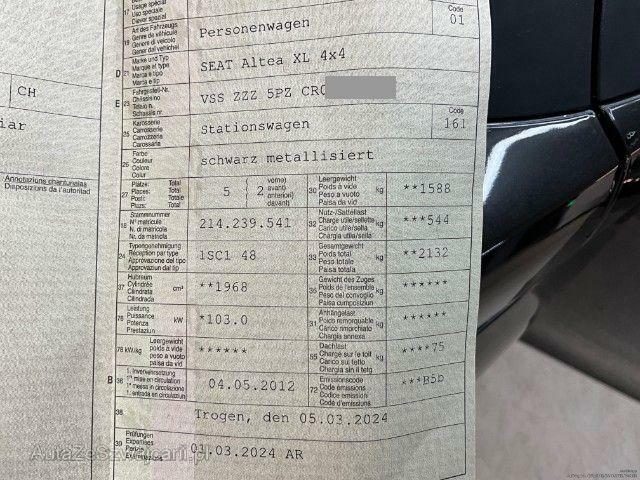 Code
Art des Fahrzeugs
Genre de véhicule
Genere di veicolo
Gener dal vehichel
19
Personenwagen
01
Marke und Typ
Marque et type
Marca e tipo
Marca e tip
D 21
SEAT Altea XL 4x4
Fahrgestell-Nr.
Châssis no
Telaio n.
Schassis nr.
E 23
VSS ZZZ 5PZ CR
CH
Karosserie
Carrosserie
Carrozzeria
Carossaria
25
Stationswagen
Code
161
Farbe
Couleur
Colore
Colur
26
schwarz metallisiert
Annotazioni cantonali
Disposizioni da l'autoritad
Plätze: Total
Places: Total
Posti: Totale
Plazs: Total
27
5 (2 vorne)
avant)
anteriori)
davant)
Leergewicht
Poids à vide
Peso a vuoto
Paisa da vid
30 kg
**1588
Stammnummer
N° matricule
N. di matricola
Nr. da matricla
18
214.239.541
Nutz-/Sattellast
Charge utile/sellette
Carico utile/sella
Chargia util/sella
32 kg
***544
Typengenehmigung
Réception par type
Approvazione del tipo
Approvaziun dal tip
24
1SC1 48
Gesamtgewicht
Poids total
Peso totale
Paisa totala
33 kg
**2132
Hubraum
Cylindrée
Cilindrata
Cilindrada
37 cm³
**1968
Gewicht des Zuges
Poids de l'ensemble
Peso del convoglio
Paisa cumposiziun
35 kg
******
Leistung
Puissance
Potenza
Prestaziun
76 kW
*103.0
Anhängelast
Poids remorquable
Peso rimorchiato
Chargia annexa
31 kg
******
Leergewicht
poids à vide
peso a vuoto
paisa da vid
78 kW/kg
******
Dachlast
Charge sur le toit
Carico sul tetto
Chargia sin il tetg
55 kg
****75
1. Inverkehrsetzung
1re mise en circulation
1a messa in circolazione
1. entrada en circulaziun
B 36
04.05.2012
Emissionscode
Code émissions
Codice emissioni
Code d'emissiuns
72
***B5b
38
Trogen, den 05.03.2024
Prüfungen
Expertises
39
01.03.2024 AR
AutaZeSzwajcarii.pl